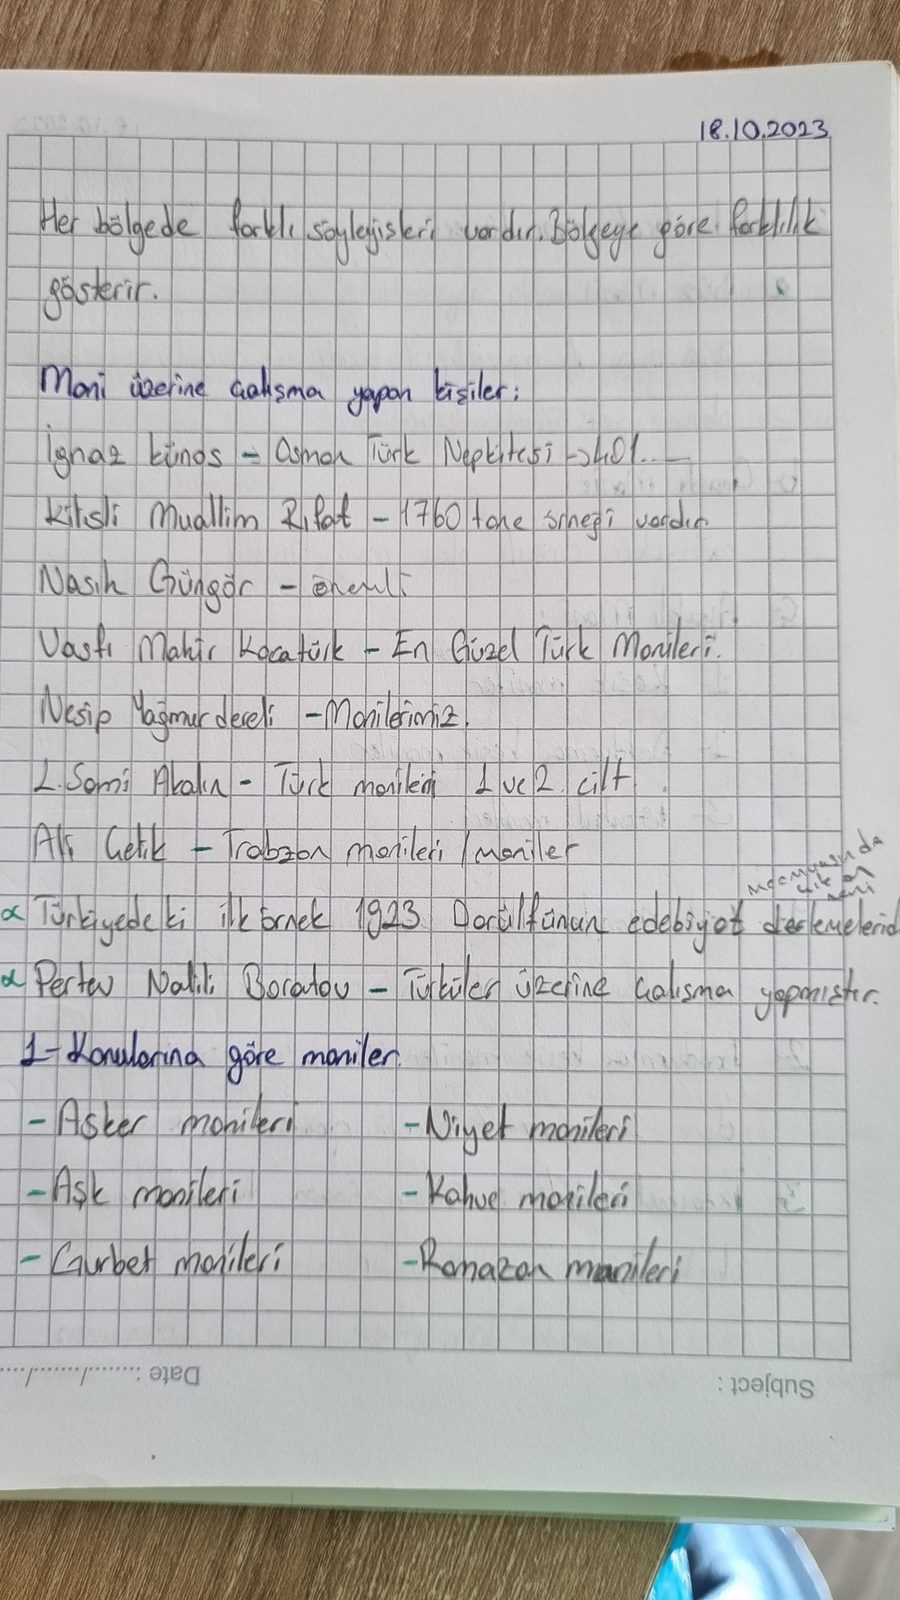 18.10.2023
Her bölgede farklı söyleyişleri vardır. Bölgeye göre farklılık
gösterir.
Mani üzerine çalışma yapan kişiler:
İgnaz künos - Osman Türk Nepkitesi → 401....
Kilisli Muallim Rıfat - 1760 tane örneği vardır
Nasıh Güngör - önemli
Vasfı Mahir Kocatürk - En Güzel Türk Manileri.
Nesip Yağmurdereli - Manilerimiz.
L. Sami Akalın - Türk manileri 1 ve 2. cilt.
Ali Çelik - Trabzon manileri / maniler
mecmuasında
çıkan
∝ Türkiyedeki ilk örnek 1923 Darülfünun edebiyat derlemelerid
∝ Pertev Naili Boratav - Türküler üzerine çalışma yapmıştır.
1- Konularına göre maniler.
- Asker manileri - Niyet manileri
- Aşk manileri - Kahve manileri
- Gurbet manileri - Ramazan manileri
Date : ......../......../....
Subject :